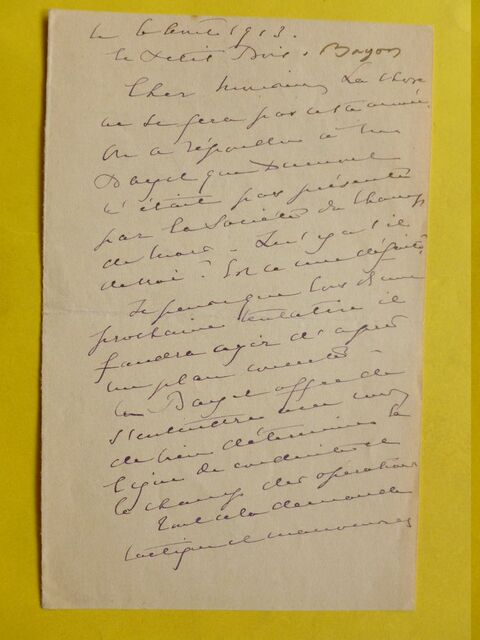 le 6 août 1913.
le Petit Bois. Bayon
Cher Monsieur, La chose
ne se fera pas cette année.
On a répondu à
que
n'était pas présenté
par la Société du Champ
de Mars. Qu'y a-t-il
de vrai ? Est-ce une défaite
Je pense que lors d'une
prochaine tentative il
faudra agir d'après
un plan concerté
offre de
s'entendre avec moi
de bien déterminer la
ligne de conduite et
le champ des opérations
Tout cela demande
tactique et manoeuvres